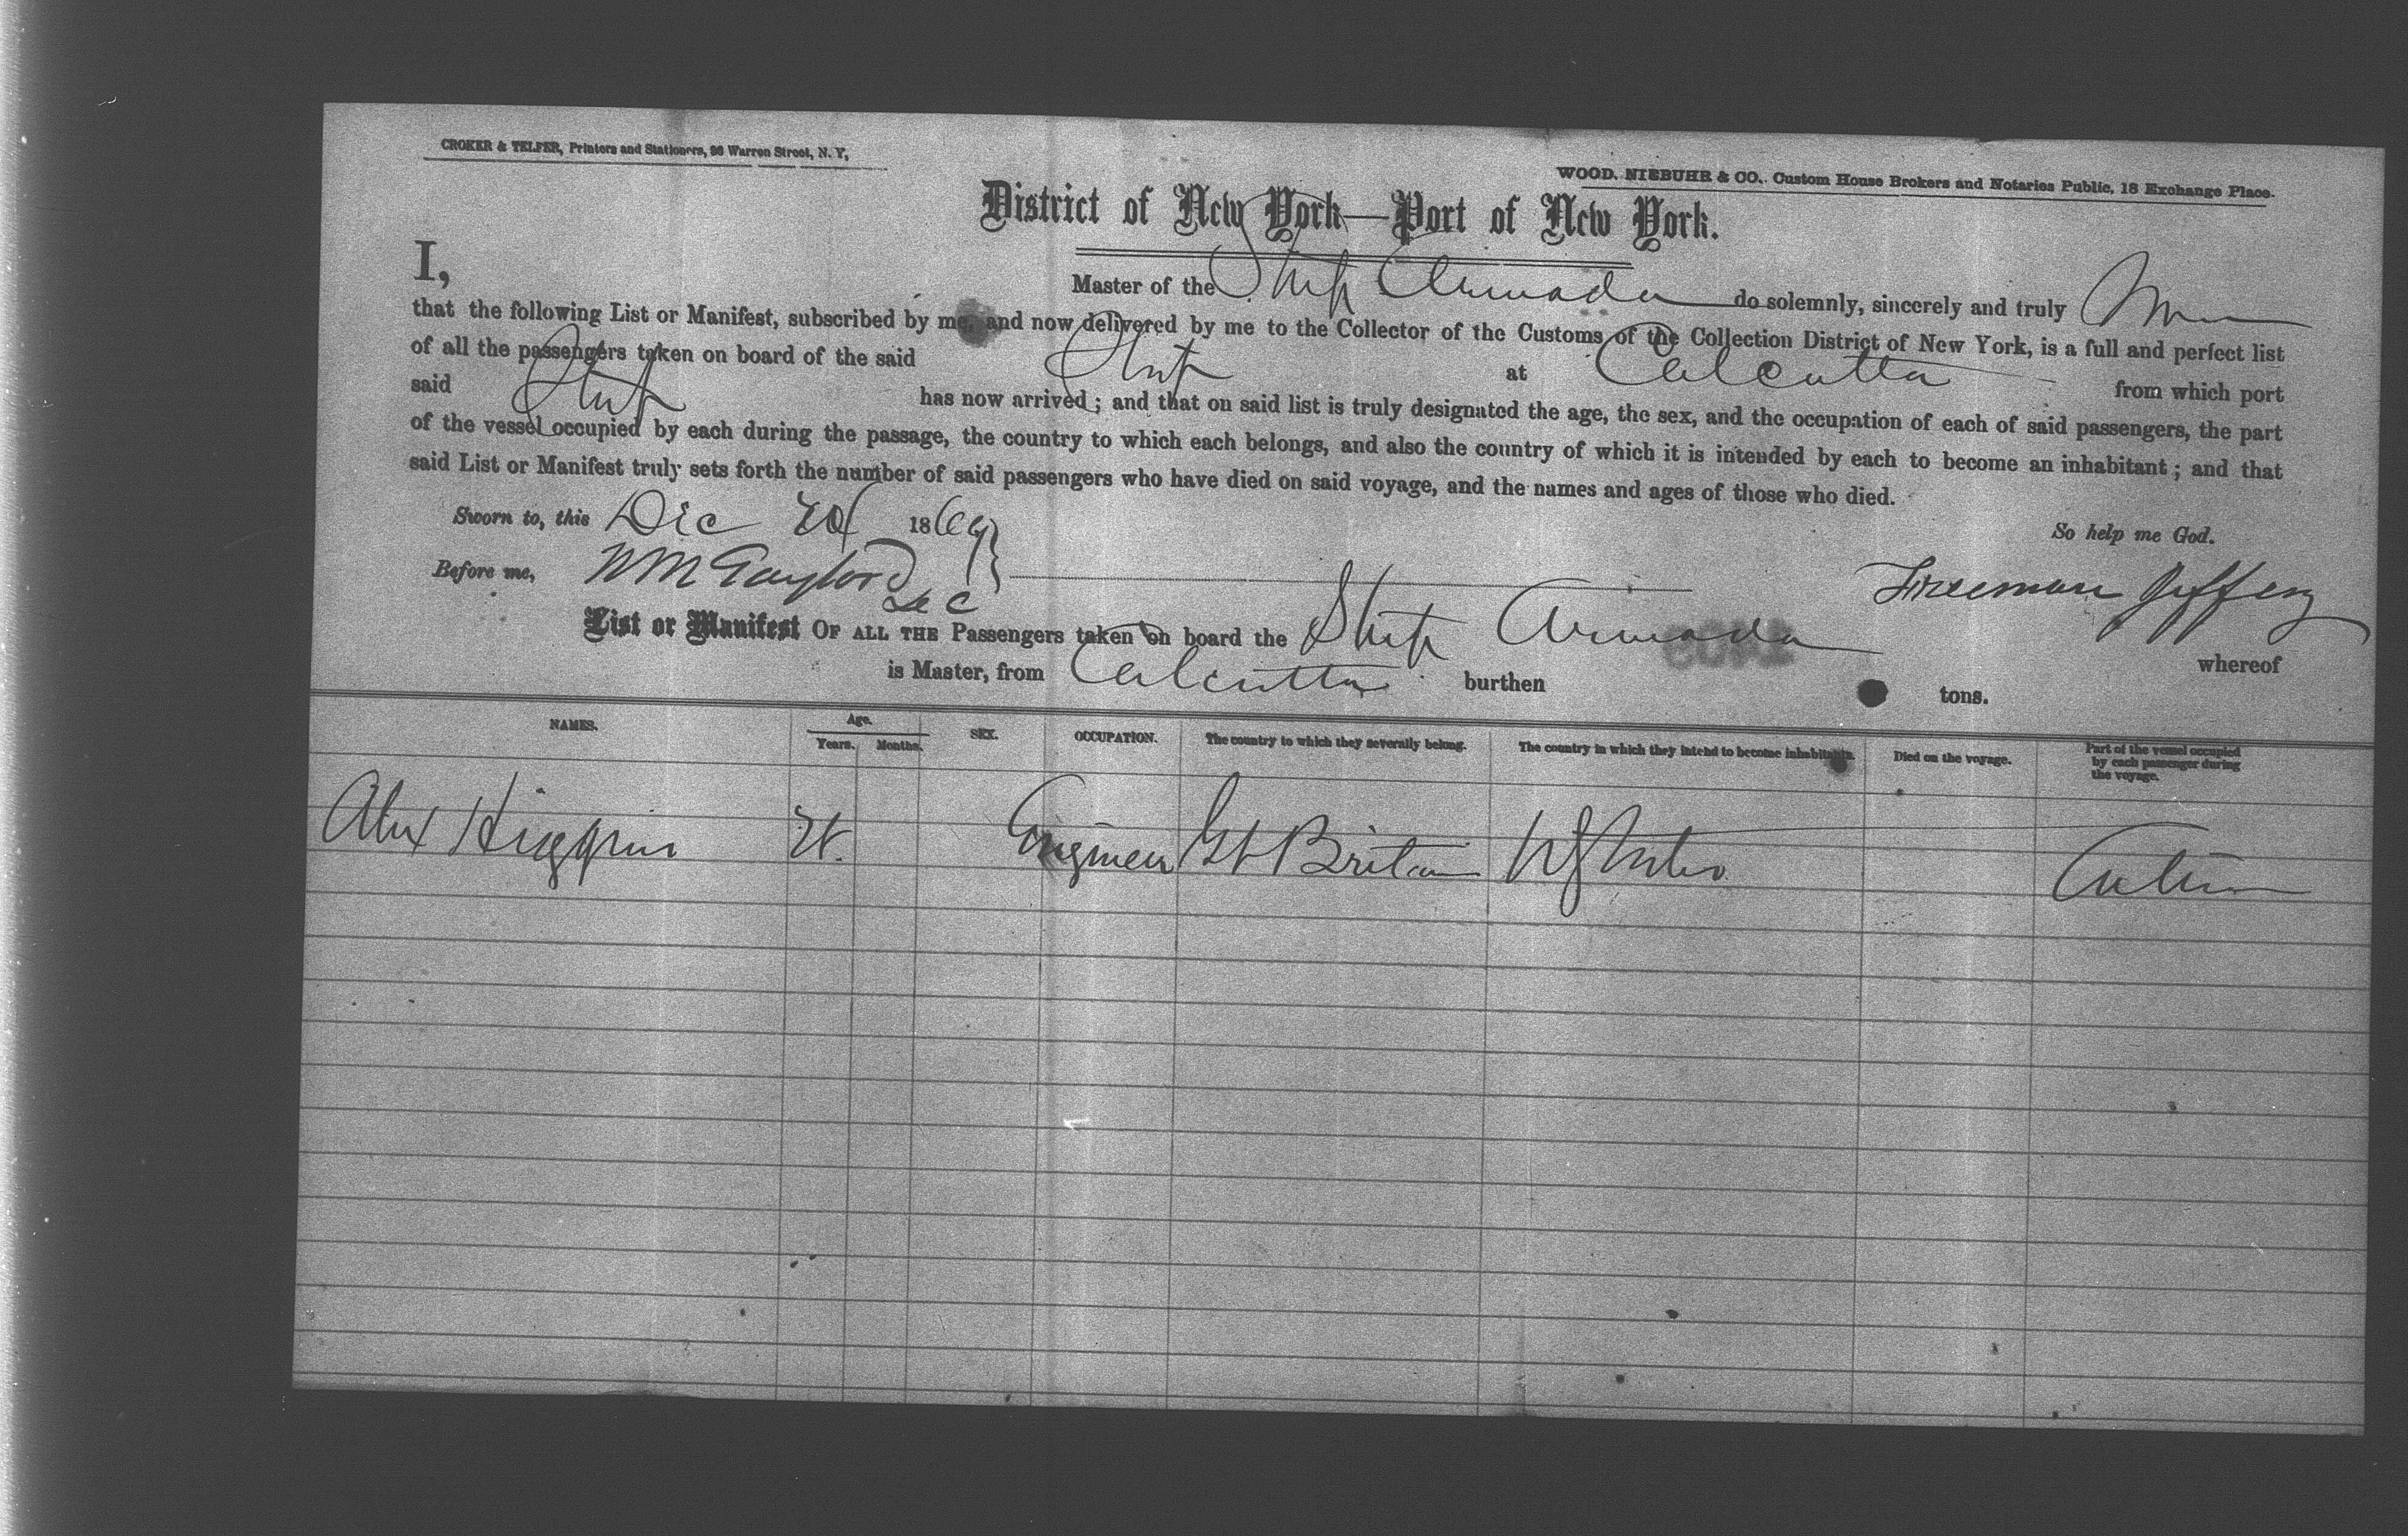 CROKER & TELFER, Printers and Stationers, 96 Warren Street, N. Y,
WOOD, NIEBUHR & CO., Custom House Brokers and Notaries Public, 18 Exchange Place.
District of New York—Port of New York.
I, Master of the Ship Armada do solemnly, sincerely and truly
that the following List or Manifest, subscribed by me, and now delivered by me to the Collector of the Customs of the Collection District of New York, is a full and perfect list
of all the passengers taken on board of the said Ship at Calcutta from which port
said Ship has now arrived; and that on said list is truly designated the age, the sex, and the occupation of each of said passengers, the part
of the vessel occupied by each during the passage, the country to which each belongs, and also the country of which it is intended by each to become an inhabitant; and that
said List or Manifest truly sets forth the number of said passengers who have died on said voyage, and the names and ages of those who died.
Sworn to, this Dec 20 1869
So help me God.
Before me, Wm Gaylord
Freeman Jeffery
List or Manifest OF ALL THE Passengers taken on board the Ship Armada whereof
is Master, from Calcutta burthen tons.
NAMES. Age. Years. Months. SEX. OCCUPATION. The country to which they severally belong. The country in which they intend to become inhabitants. Died on the voyage. Part of the vessel occupied by each passenger during the voyage.
Alex Higgins Engineer Gt Britain Cabin